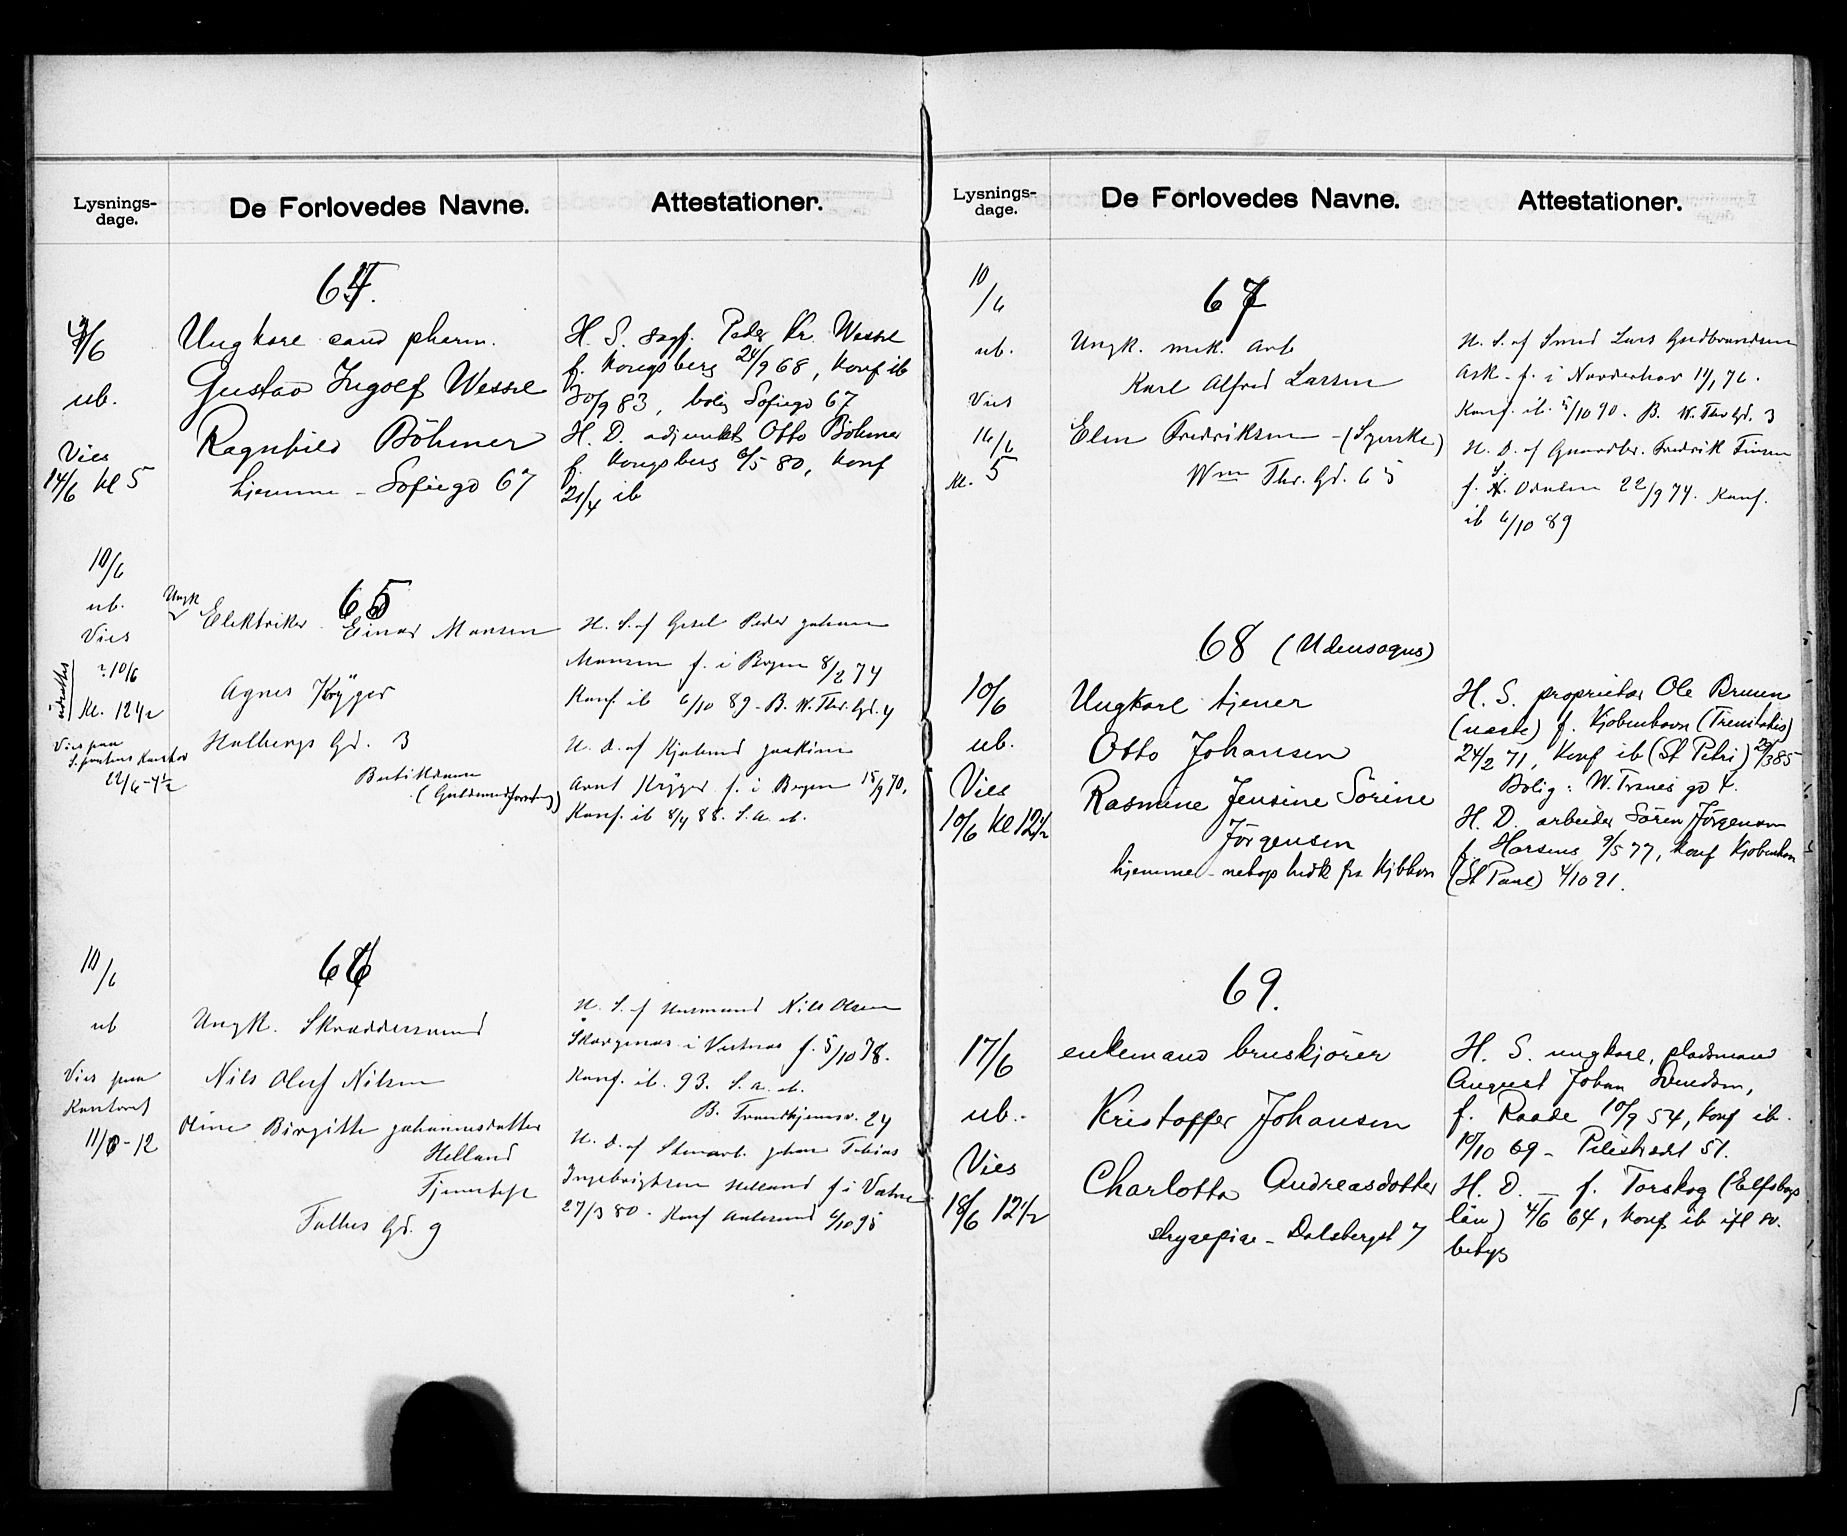 Lysnings-
dage.
De Forlovedes Navne.
Attestationer.
64.
4/6
ub.
Vies
14/6 kl 5
Ungkare cand pharm.
Gustav Ingolf Wessel
Ragnhild Böhmer
hjemme - Sofiegd 67
H. S. sagf. Peder Kr. Wessel
f. Kongsberg 24/9 68, konf ib
30/9 83, bolig Sofiegd 67
H. D. adjunkt Otto Böhmer
f. Kongsberg 6/5 80, konf
21/4 ib
65
10/6
ub.
Vies
10/6
Kl. 12 1/2
Vies paa
Kontor
22/6 - 4 1/2
Ungk
Elektriker Einar Monsen
Agnes Krÿger
Holbergs Gd. 3
Butikdame
H. S. af Gesel Peder Johan
Monsen f. i Bergen 8/2 74
Konf. ib 6/10 89 - B. W. Thr. Gd. 4
H. D. af Joakim
Arnt Krÿger f. i Bergen 15/9 70.
Konf. ib 8/4 88. S. A. st.
66
10/6
ub
Vies paa
Kontoret
11/6 - 12
Ungk. Skræddersvend
Nils Oluf Nilsen
Oline Birgitte Johannesdatter
Helland
Tjenestepi
Tullins Gd. 9
H. S. af Husmand Nils Olsen
i Vestnes f. 5/10 78.
Konf. ib. 93. S. a. st.
B. Trondhjemsv. 24
H. D. af Stenarb. Johan Tobias
Ingebrigtsen Helland f i Vatne
27/3 80 - Konf Aalesund 6/10 95
Lysnings-
dage.
De Forlovedes Navne.
Attestationer.
67
10/6
ub.
Vies
16/6
Kl. 5
Ungk. mek. Arb
Karl Alfred Larsen
Elen Fredriksen - (Syerske)
Wm Thr. Gd. 65
H. S. af Smed Lars Gudbrandsen
Ask - f. i Norderhov 76.
Konf. ib. 5/10 90. B. W. Thr Gd. 3
H. D. af Gaardbr. Fredrik Finsen
f. S. Odalen 22/9 74. Konf.
ib 6/10 89
68 (Udensogns)
10/6
ub.
Vies
10/6 kl 12 1/2
Ungkarl tjener
Otto Johansen
Rasmine Jensine Sörine
Jörgensen
hjemme - netop hidk fra Kjbhvn
H. S. proprietær Ole Bruun
(uægte) f. Kjøbenhavn (Trinitatis)
24/2 71, konf ib (St Petri) 29/3 85
Bolig: W. Tranes gd 4.
H. D. arbeider Sören Jörgensen
f. Horsens 9/5 77, konf Kjøbenhavn
(St Paul) 4/10 91.
69.
17/6
ub.
Vies
18/6 12 1/2
enkemand bruskjører
Kristoffer Johansen
Charlotta Andreasdotter
strygepige - Dalsbergst 7
H. S. ungkarl, pladsmand
August Johan Svendsen,
f. Raade 10/9 54, konf ib.
10/10 69 - Pilestrædt 51.
H. D. — f. Torskog (Elfsborgs
län) 4/6 64, konf ib ifl sv.
betyg